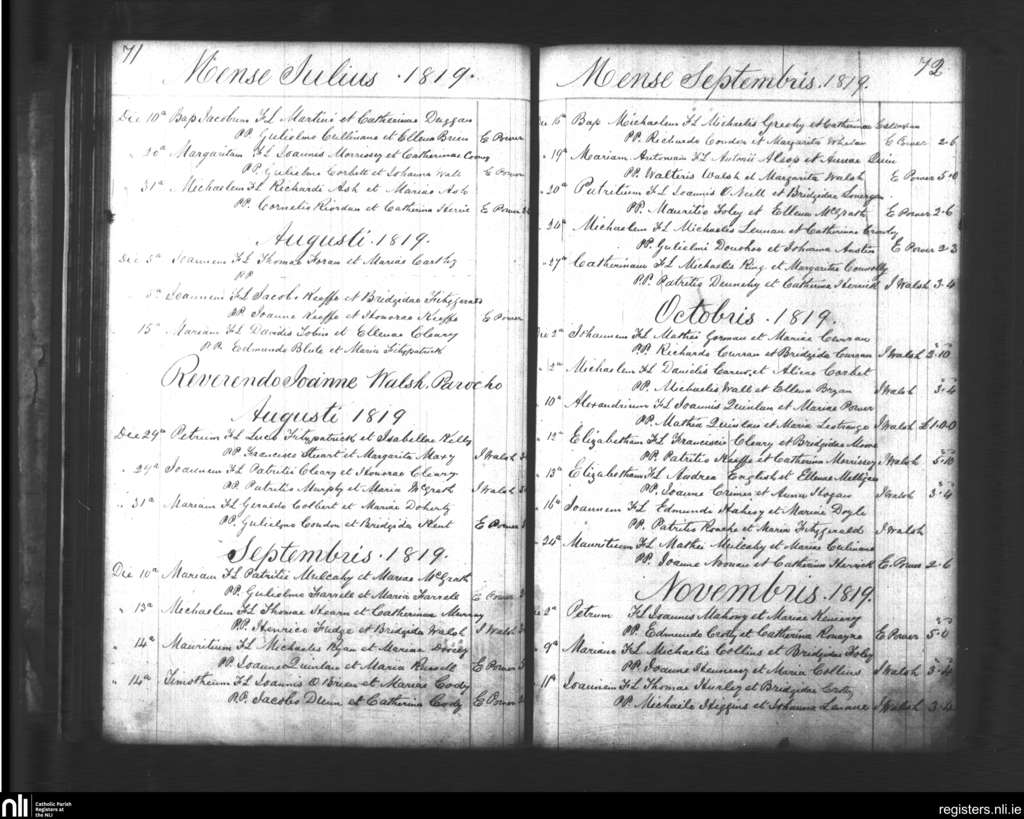 71
Mense Julius . 1819.
Die 10a Bap Jacobum FL Martini et Catherinae Duggan
PP. Gulielmo Cullinane et Ellena Brien E Power
" 20a Margaritam FL Joannis Morrissey et Catherinae
PP. Gulielmo Corbett et Johanna Wall E Power
" 31a Michaelem FL Richardi Ash et Mariae Ash
PP. Cornelio Riordan et Catherina E Power
Augusti . 1819.
Die 5a Joannem FL Thomae Foran et Mariae Carthy
PP
" 5a Joannem FL Jacobi Keeffe et Bridgidae Fitzgerald
PP Joanne Keeffe et Honorae Keeffe E Power
" 15a Mariam FL Davidis Tobin et Ellenae Cleary
PP. Edmundo Blute et Maria Fitzpatrick
Reverendo Joanne Walsh. Parocho
Augusti 1819
Die 29a Petrum FL Luca Fitzpatrick et Isabellae Welby
PP Francisco Stuart et Margarita Mary J Walsh
" 29a Joannem FL Patritii Cleary et Honorae Cleary
PP. Patritio Murphy et Maria McGrath J Walsh
" 31a Mariam FL Geraldo Colbert et Mariae Doherty
PP. Gulielmo Condon et Bridgida Kent E Power
Septembris . 1819.
Die 10a Mariam FL Patritii Mulcahy et Mariae McGrath
PP. Gulielmo Farrell et Maria Farrell E Power
" 13a Michaelem FL Thomae Hearn et Catherinae Murray
PP. Henrico Fudge et Bridgida Walsh J Walsh
" 14a Mauritium FL Michaelis Ryan et Mariae
PP. Joanne Quinlan et Maria Russell E Power
" 14a Timotheum FL Joannis O Brien et Mariae Cody
PP. Jacobo Dunn et Catherina Cody E Power
72
Mense Septembris . 1819.
Die 16a Bap Michaelem FL Michaelis Greehy et Catherinae
PP. Richardo Conder et Margarita Whelan E Power 2-6
" 19a Mariam Antoniam FL Antonii Alsop et Annae Quin
PP. Walteris Walsh et Margarita Walsh E Power 5-0
" 20a Patritium FL Joannis O Neill et Bridgidae Lonergan
PP. Mauritio Foley et Ellena McGrath E Power 2-6
" 24a Michaelem FL Michaelis Lennan et Catherinae Crowly
PP. Gulielmi Donohoe et Johanna Austin E Power 2-3
" 27a Catherinam FL Michaelis King et Margaritae Connolly
P.P. Patritio Dennehy et Catherina Herrick J Walsh 3-4
Octobris . 1819.
Die 2a Johannem FL Mathei Gorman et Mariae Curran
PP. Richardo Curran et Bridgida Curran J Walsh 2-10
" 2a Michaelem FL Danielis Carew et Alicia Corbet
PP. Michaelis Wall et Ellena Bryan J Walsh 3-4
" 10a Alexandrium FL Joannis Quinlan et Mariae Power
PP. Mathea Quinlan et Maria Lestrange J Walsh £1-0-0
" 12a Elizabetham FL Franciscis Cleary et Bridgidae Moore
PP. Patritio Keeffe et Catherina Morrissey J Walsh 5-10
" 13a Elizabetham FL Andrea English et Ellenae Milligan
PP. Joanne Crimes et Anna Hogan J Walsh 3-4
" 16a Joannem FL Edmundi Hahesy et Mariae Doyle
PP. Patritio Roache et Maria Fitzgerald J Walsh
" 24a Mauritium FL Mathei Mulcahy et Mariae Culinane
PP. Joanne Noonan et Catherina Herrick E Power 2-6
Novembris . 1819.
Die 2a Petrum FL Joannes Mahony et Mariae Kennery
PP. Edmundo Crotty et Catherina Ronayne E Power 5-0
" 9a Mariam FL Michaelis Collins et Bridgidae Foley
PP. Joanne Hennessy et Maria Collins J Walsh 3-4
" 11a Joannem FL Thomae Hurley et Bridgidae Crotty
PP. Michaelo Higgins et Johanna J Walsh 3-4
nli
Catholic Parish
Registers at
the NLI
registers.nli.ie